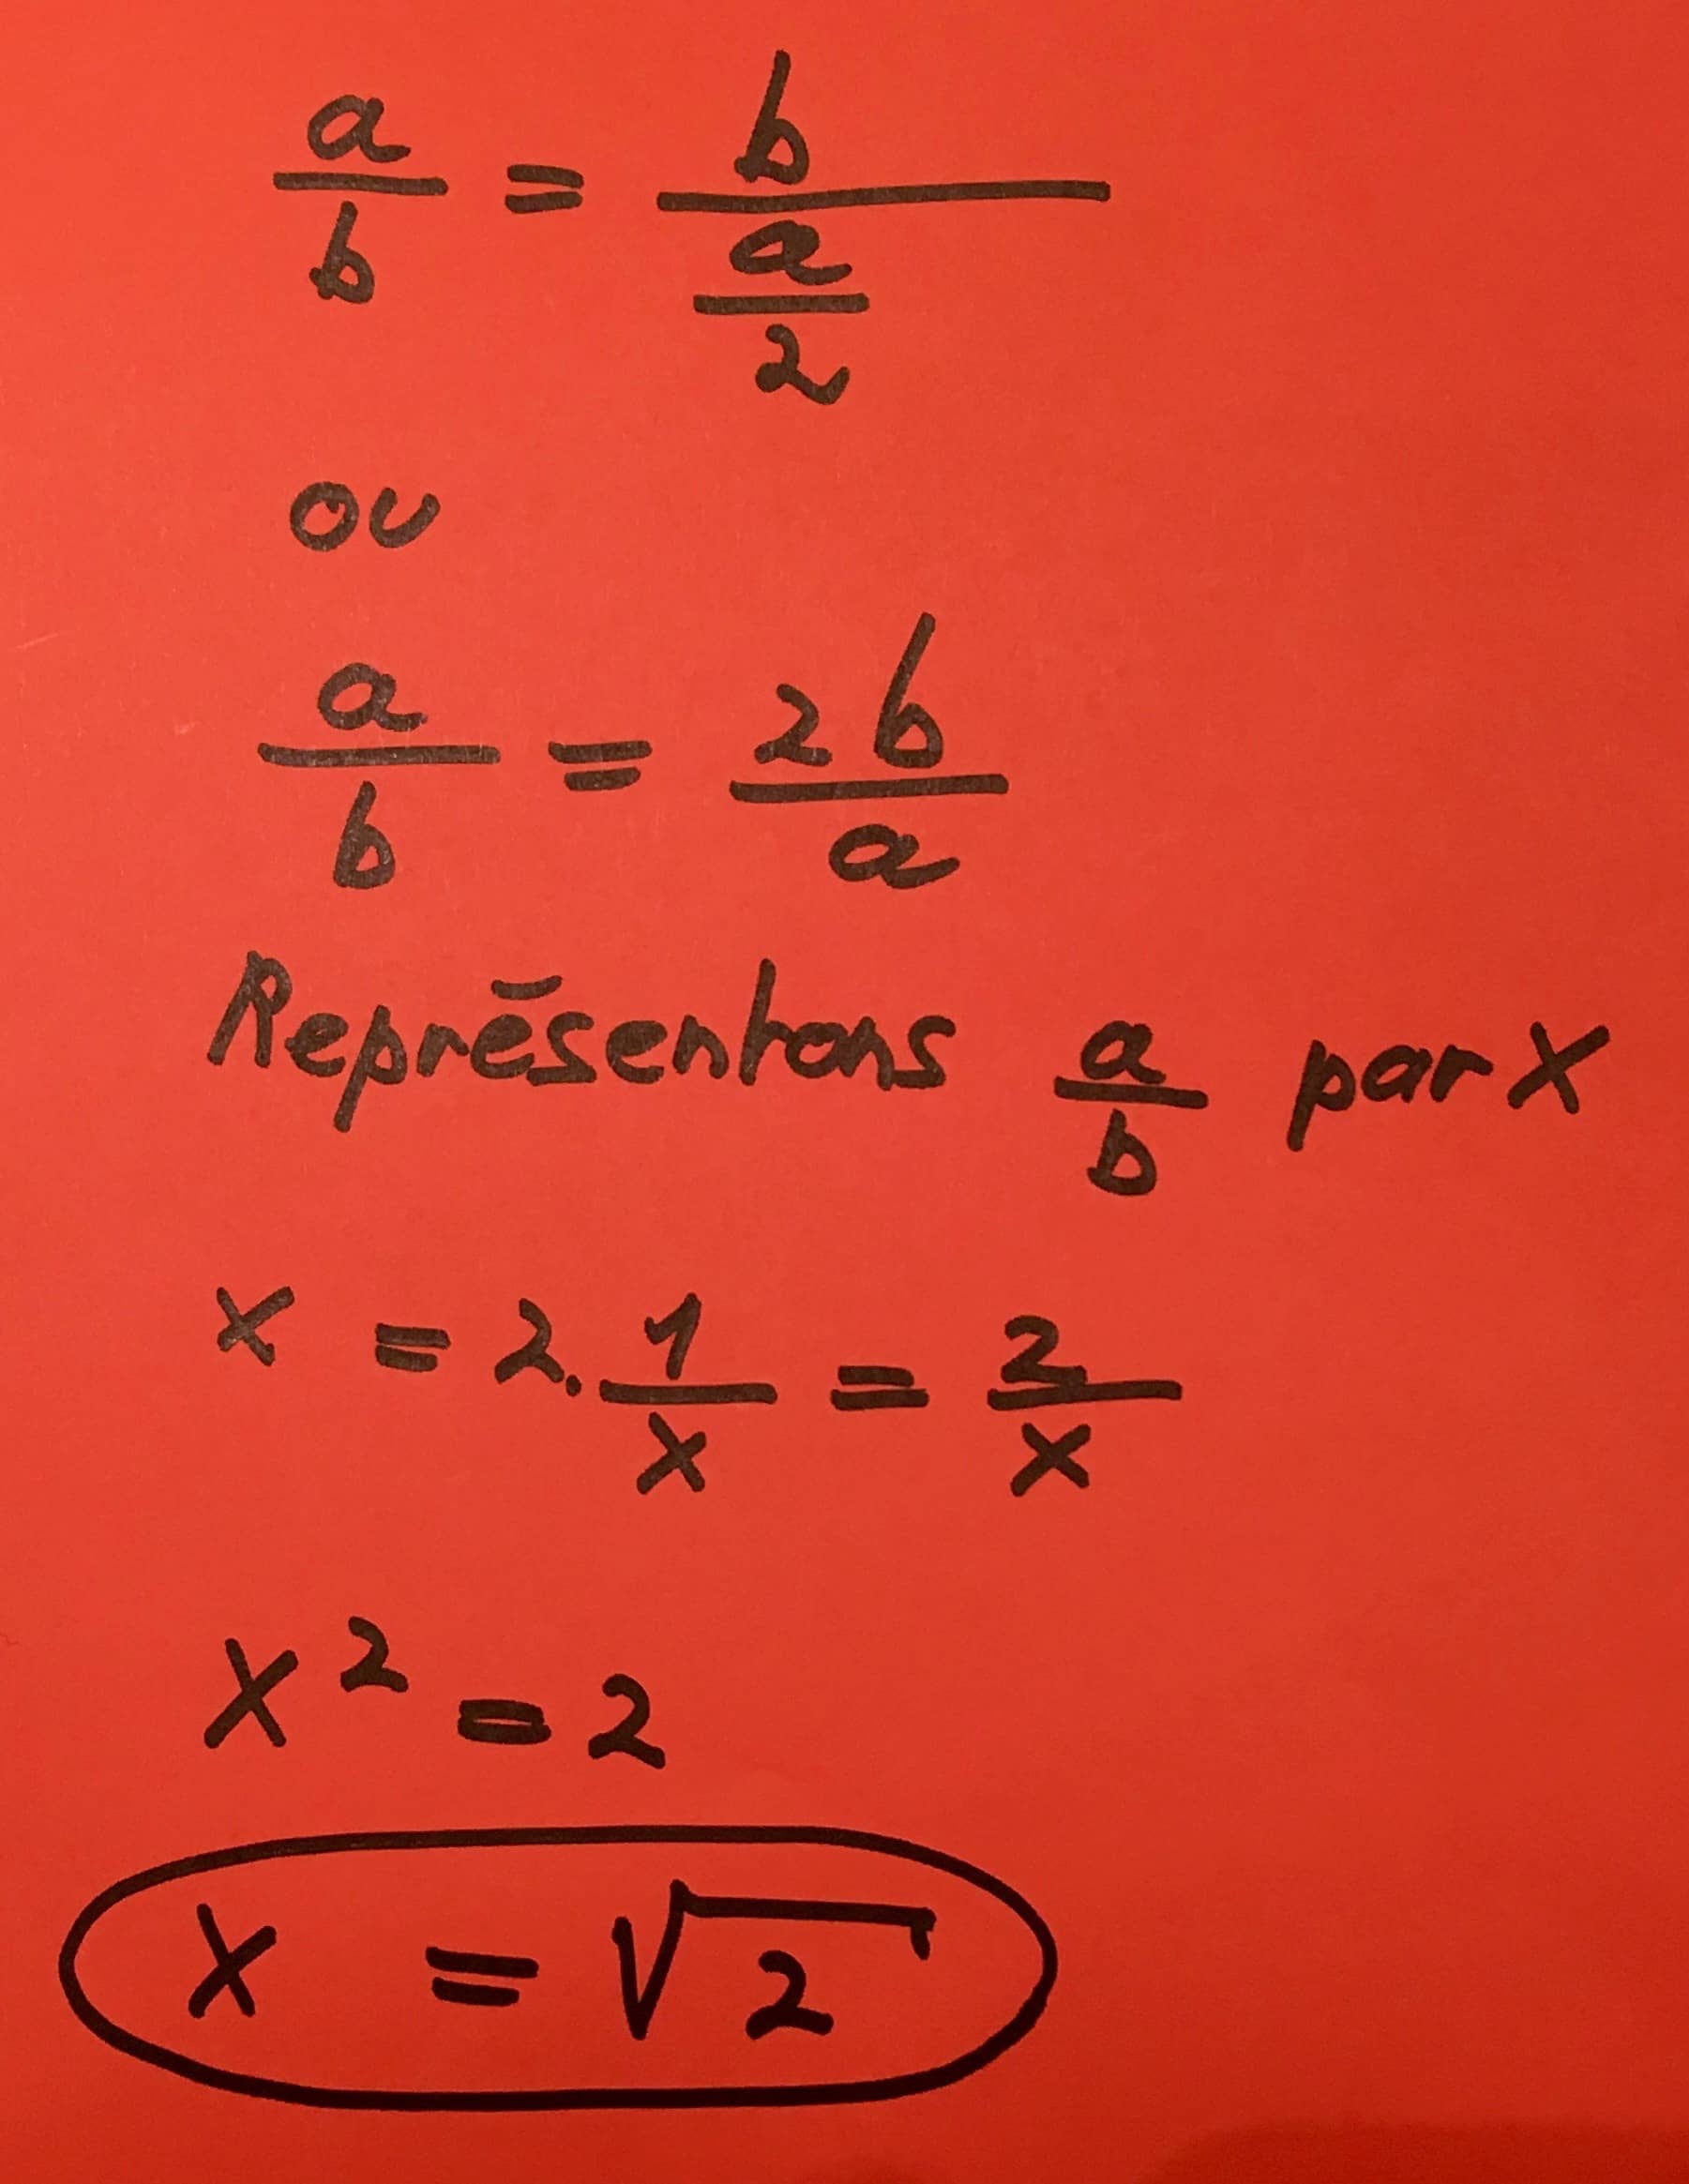 a/b = b/(a/2)
ou
a/b = 2b/a
Représentons a/b par X
x = 2. 1/x = 2/x
X² = 2
X = √2